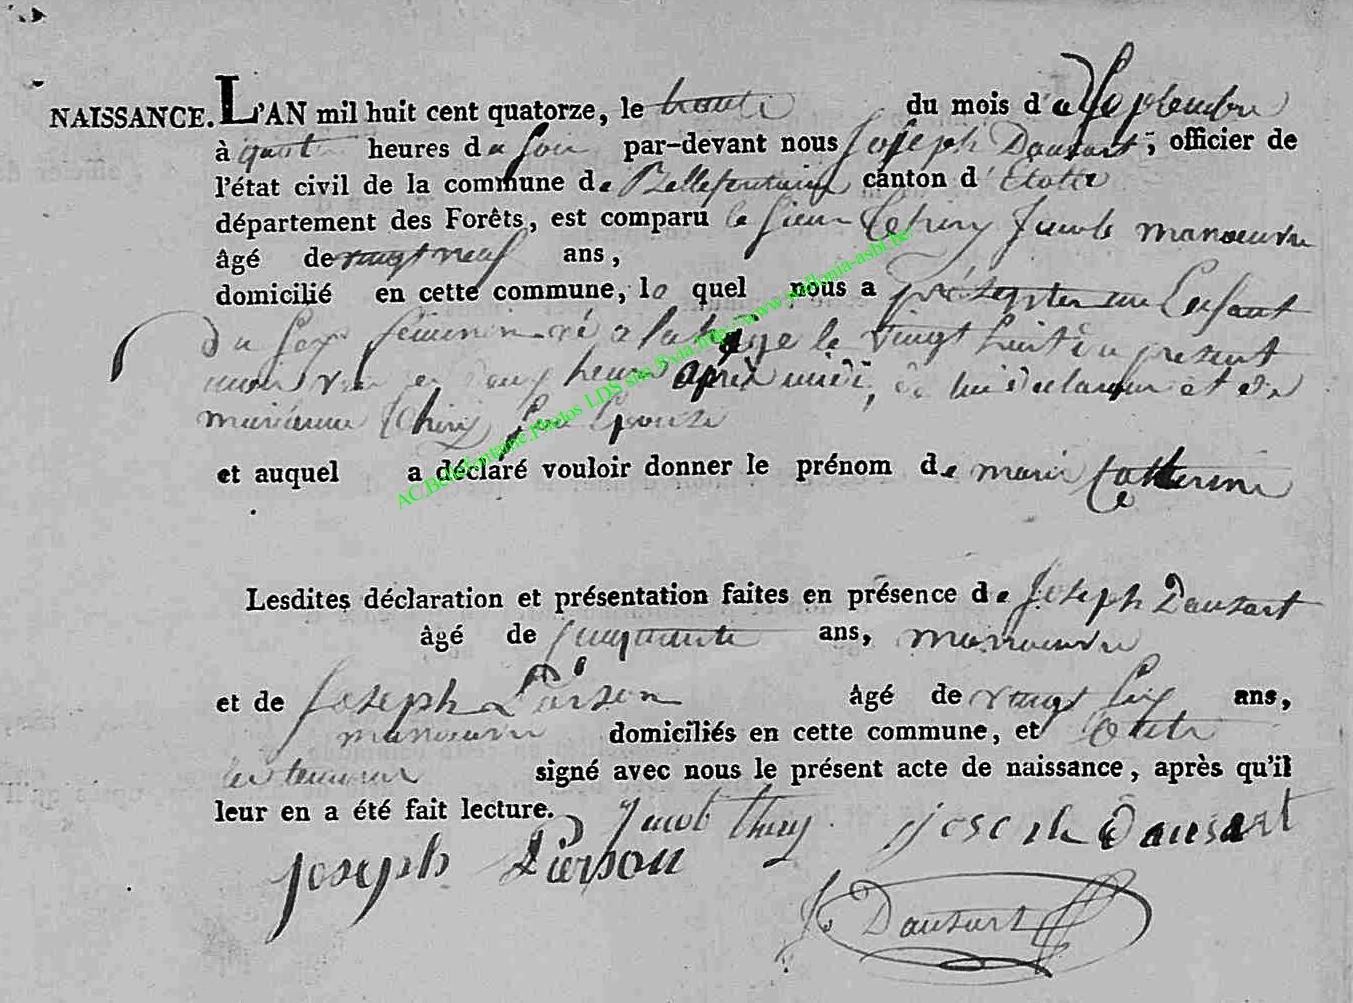 NAISSANCE. L'AN mil huit cent quatorze, le trante du mois de Septembre
à quatre heures du soir par-devant nous Joseph Dausart, officier de
l'état civil de la commune de Bellefontaine canton d'Etalle
département des Forêts, est comparu le sieur Jacob manoeuvre
âgé de vingt neuf ans,
domicilié en cette commune, lequel nous a présenter un Enfant
du sexe feminin né a le vingt huit du present
mois heure après midi, de lui déclarant et de
son Epouse
et auquel a déclaré vouloir donner le prénom de marie Catherine
Lesdites déclaration et présentation faites en présence de Joseph Dausart
âgé de cinquante ans, manoeuvre
et de Joseph Pierson âgé de vingt six ans,
manoeuvre domiciliés en cette commune, et
les temoins signé avec nous le présent acte de naissance, après qu'il
leur en a été fait lecture. Jacob Thiry Joseph Dausart
Joseph Pierson
J. Dausart
AC.Bellefontaine.Photos LDS site & via http://www.wallonia-asbl.be